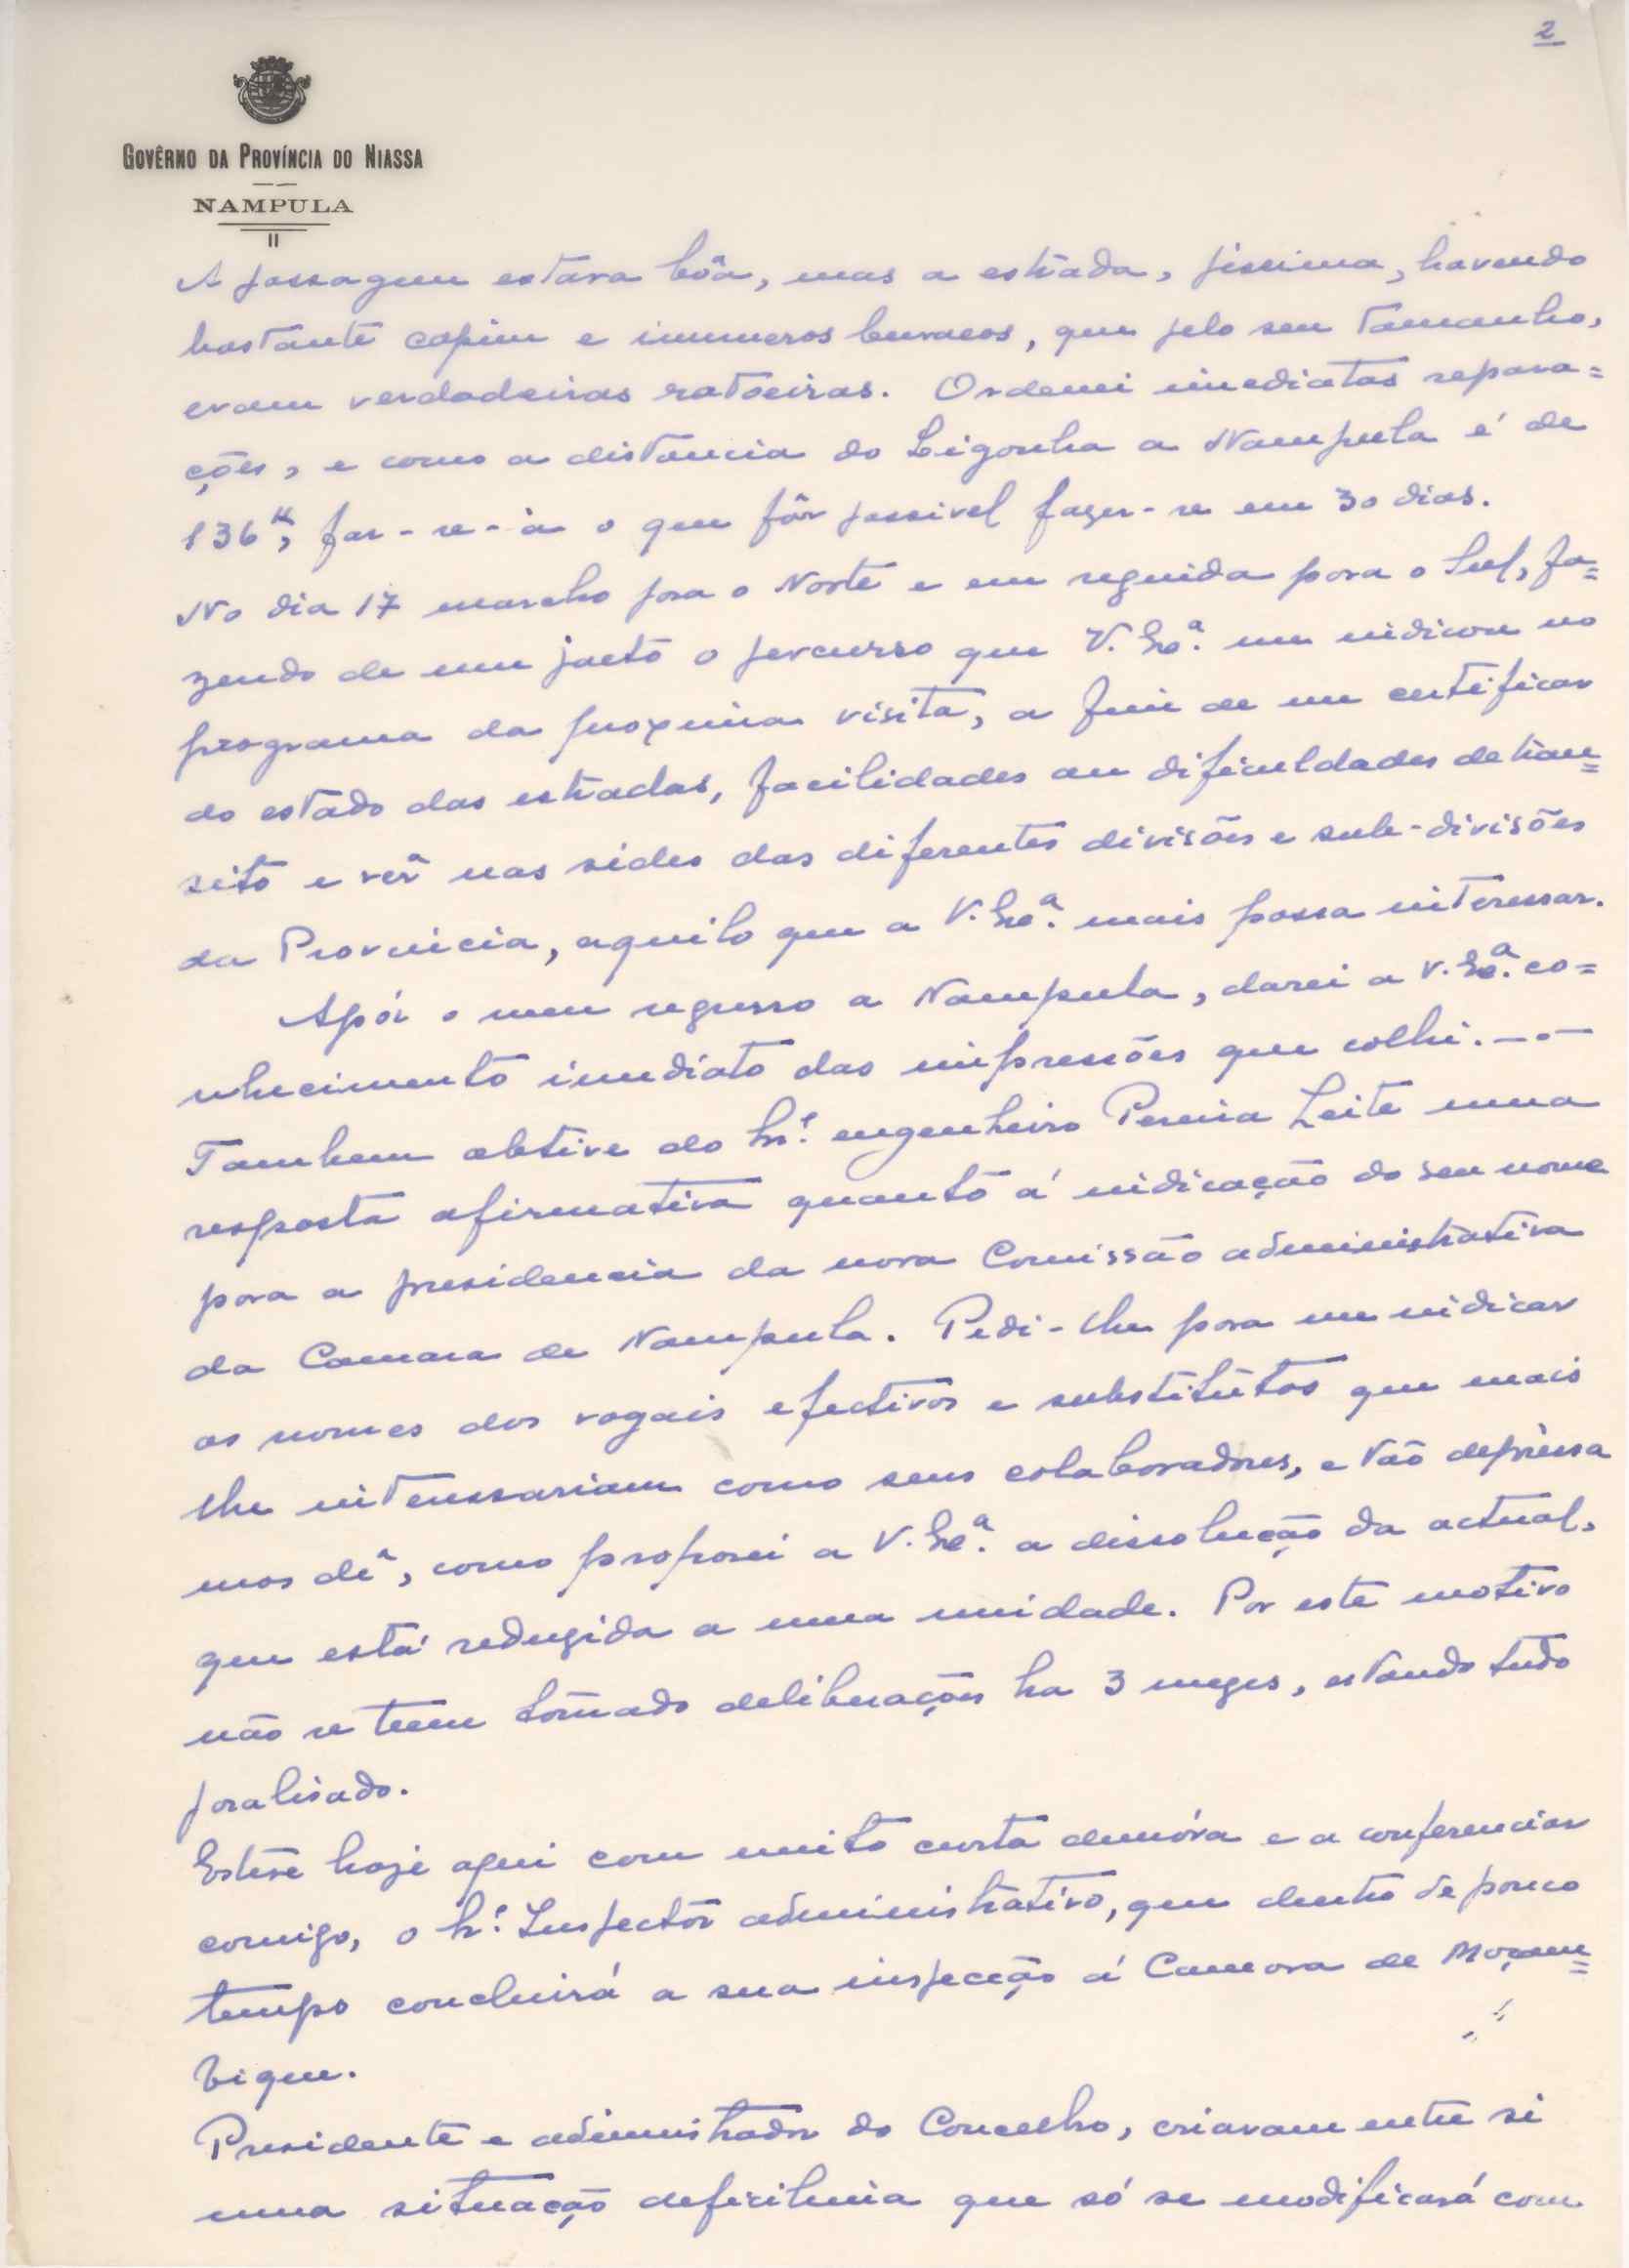 2
GOVÊRNO DA PROVÍNCIA DO NIASSA
NAMPULA
A passagem estava bôa, mas a estrada, pessima, havendo
bastante capim e inumeros buracos, que pelo seu tamanho,
eram verdadeiras ratoeiras. Ordenei imediatas repara=
ções, e como a distancia do Ligonha a Nampula é de
136K, far-se-à o que fôr possivel fazer-se em 30 dias.
No dia 17 marcho para o Norte e em seguida para o Sul, fa=
zendo de um jacto o percurso que V. Exª. me indicou no
programa da proxima visita, a fim de me certificar
do estado das estradas, facilidades ou dificuldades de tran=
sito e vêr nas sédes das diferentes divisões e sub-divisões
da Provincia, aquilo que a V. Exª. mais possa interessar.
Após o meu regresso a Nampula, darei a V. Exª. co=
nhecimento imediato das impressões que colhi.—.—
Tambem obtive do Snr. engenheiro Pereira Leite uma
resposta afirmativa quanto á indicação do seu nome
para a presidencia da nova Comissão administrativa
da Camara de Nampula. Pedi-lhe para me indicar
os nomes dos vogais efectivos e substitutos que mais
lhe interessariam como seus colaboradores, e tão depressa
mos dê, como proporei a V. Exª. a dissolução da actual,
que está reduzida a uma unidade. Por este motivo
não se teem tomado deliberações ha 3 mezes, estando tudo
paralisado.
Estêve hoje aqui com muito curta demóra e a conferenciar
comigo, o Snr. Inspector administrativo, que dentro de pouco
tempo concluirá a sua inspecção á Camara de Moçam=
bique.
Presidente e administrador do Concelho, criavam entre si
uma situação deficilima que só se modificará com